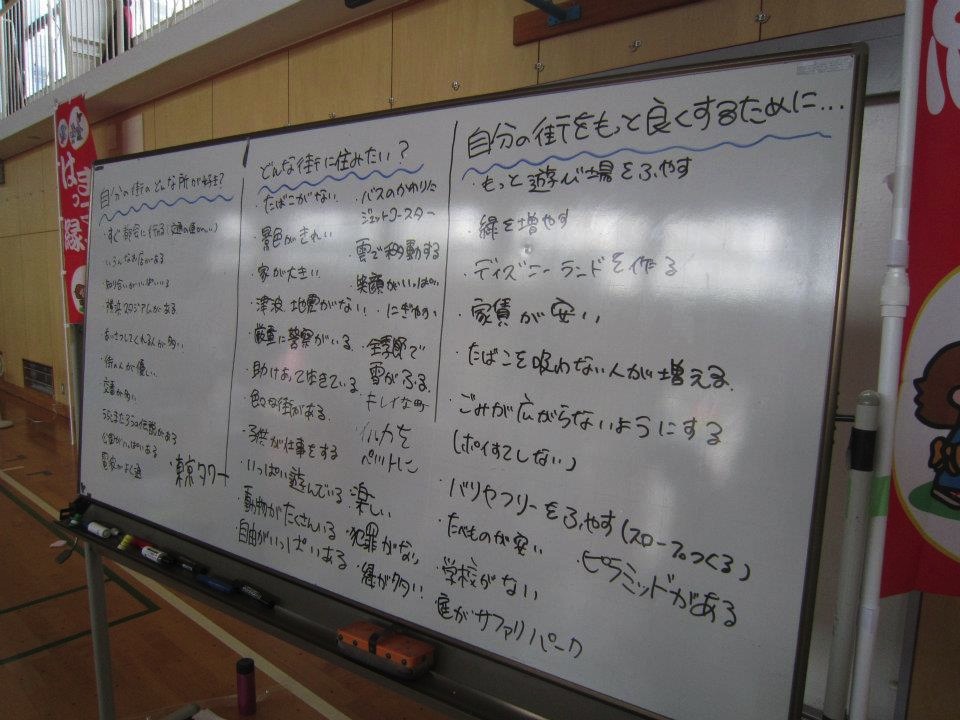 自分の街のどんな所が好き?
・すぐ都会に行ける(交通の便がいい)
・いろんなお店がある
・知り合いがいっぱいいる
・横浜スタジアムがある
・あいさつしてくれる人が多い
・街の人が優しい
・交番が多い
・うらしまたろうの伝説がある
・公園がいっぱいある
・電車がよく通
・東京タワー
どんな街に住みたい?
・たばこがない
・景色がきれい
・家が大きい
・津波 地震がない
・厳重に警察がいる
・助けあって生きている
・色々な街がある
・子供が仕事をする
・いっぱい遊んでいる
・動物がたくさんいる
・自由がいっぱいある
・バスのかわりに
ジェットコースター
・雲で移動する
・笑顔がいっぱい
・にぎやか
・全季節で
雪がふる
・キレイな町
・イルカを
ペットに
・楽しい
・犯罪がない
・緑が多い
自分の街をもっと良くするために…
・もっと遊び場をふやす
・緑を増やす
・ディズニーランドを作る
・家賃が安い
・たばこを吸わない人が増える
・ごみが広がらないようにする
(ポイすてしない)
・バリヤフリーをふやす(スロープつくる)
・たべものが安い
・ピラミッドがある
・学校がない
・庭がサファリパーク
はっ
縁